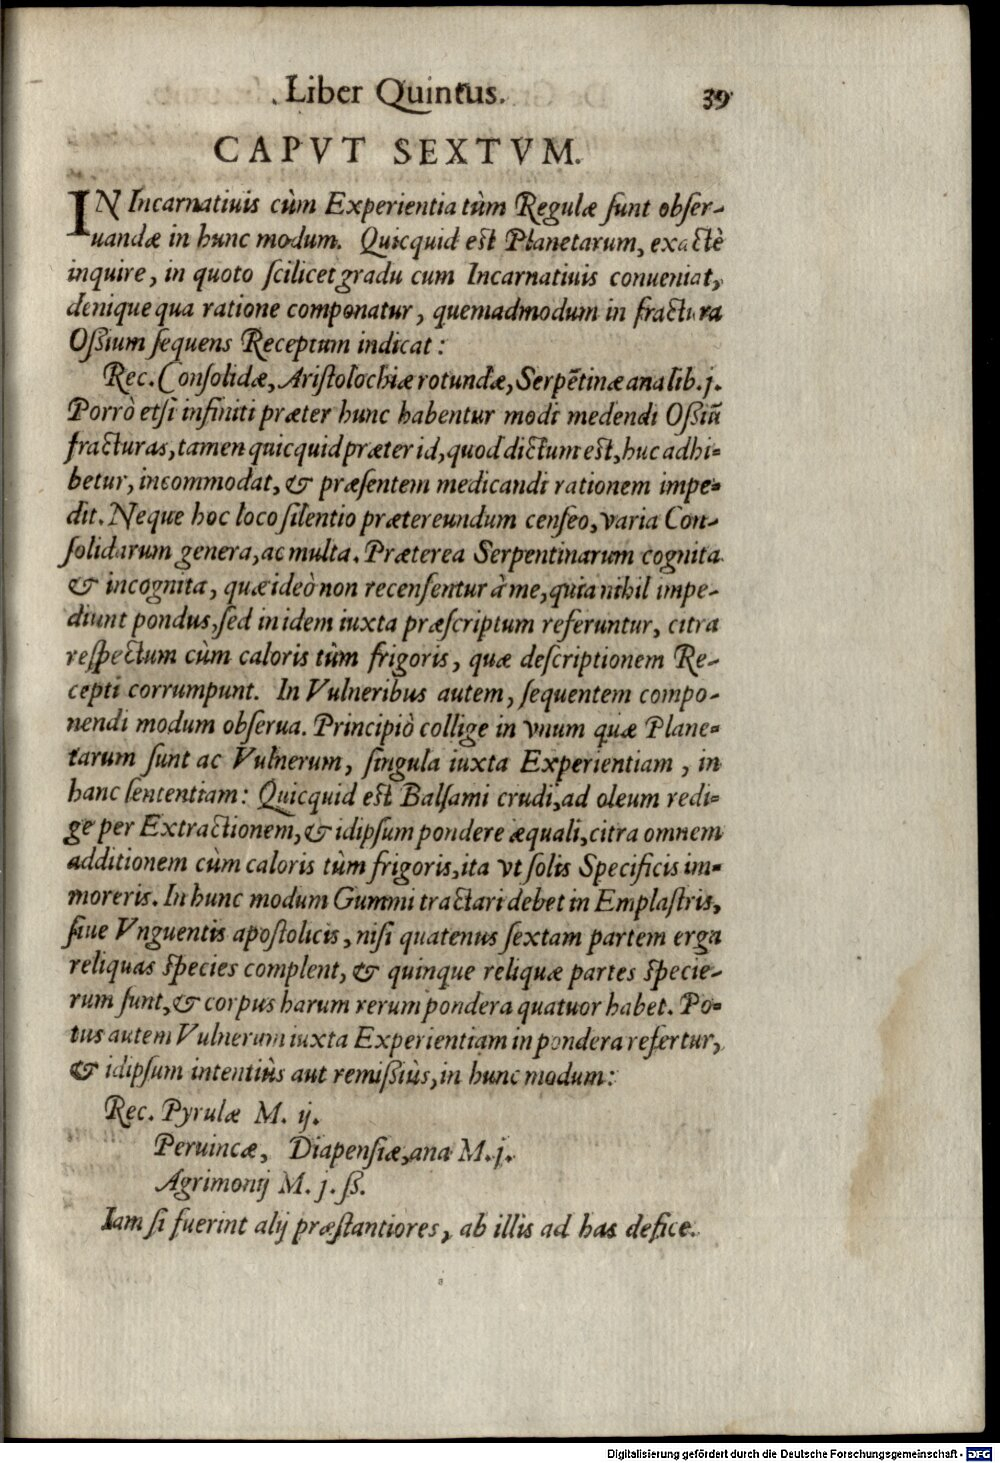 Liber Quintus. 39
CAPVT SEXTVM.
IN Incarnatiuis cùm Experientia tùm Regulæ ſunt obſer-
uandæ in hunc modum. Quicquid est Planetarum, exactè
inquire, in quoto ſcilicet gradu cum Incarnatiuis conueniat,
denique qua ratione componatur, quemadmodum in fractura
Oſſium ſequens Receptum indicat:
Rec. Conſolidæ, Ariſtolochiæ rotundæ, Serpẽtinæ ana lib. j.
Porrò etſi infiniti præter hunc habentur modi medendi Oſſiũ
fracturas, tamen quicquid præter id, quod dictum est, huc adhi-
betur, incommodat, & præſentem medicandi rationem impe-
dit. Neque hoc loco ſilentio prætereundum cenſeo, varia Con-
ſolidarum genera, ac multa. Præterea Serpentinarum cognita
& incognita, quæ ideò non recenſentur à me, quia nihil impe-
diunt pondus, ſed in idem iuxta præſcriptum referuntur, citra
reſpectum cùm caloris tùm frigoris, quæ deſcriptionem Re-
cepti corrumpunt. In Vulneribus autem, ſequentem compo-
nendi modum obſerua. Principiò collige in vnum quæ Plane-
tarum ſunt ac Vulnerum, ſingula iuxta Experientiam, in
hanc ſententiam: Quicquid est Balſami crudi, ad oleum redi-
ge per Extractionem, & idipſum pondere æquali, citra omnem
additionem cùm caloris tùm frigoris, ita vt ſolis Specificis im-
moreris. In hunc modum Gummi tractari debet in Emplaſtris,
ſiue Vnguentis apoſtolicis, niſi quatenus ſextam partem erga
reliquas ſpecies complent, & quinque reliquæ partes ſpecie-
rum ſunt, & corpus harum rerum pondera quatuor habet. Po-
tus autem Vulnerum iuxta Experientiam in pondera refertur,
& idipſum intentiùs aut remiſſiùs, in hunc modum:
Rec. Pyrulæ M. ij.
Peruincæ, Diapenſiæ, ana M. j.
Agrimonij M. j. ß.
Iam ſi fuerint alij præſtantiores, ab illis ad has defice.
Digitalisierung gefördert durch die Deutsche Forschungsgemeinschaft - DFG